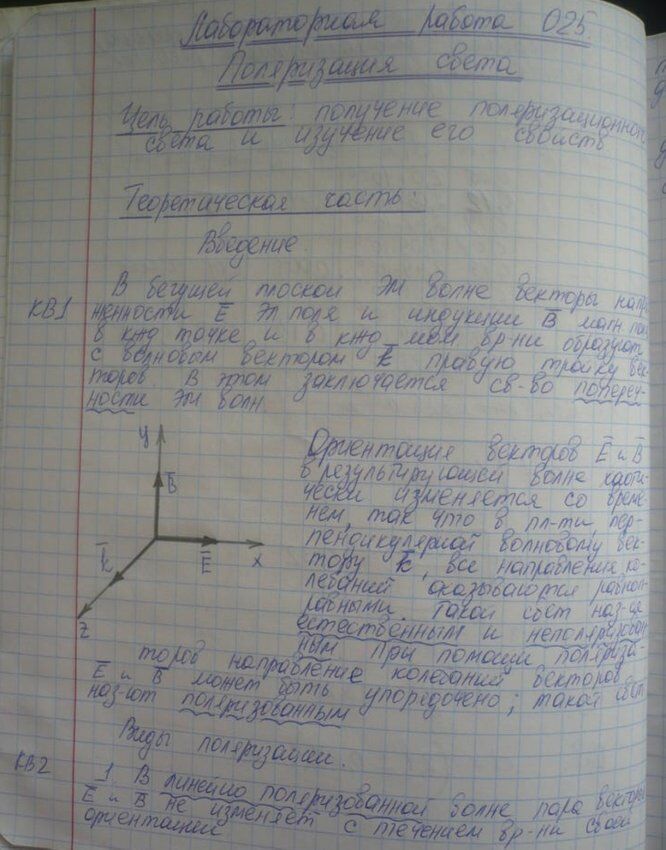 Лабораторная работа 025.
Поляризация света
Цель работы: получение поляризационного
света и изучение его свойств
Теоретическая часть:
Введение.
КВ1
В бегущей плоской ЭМ волне векторы напря
женности E̅ эл поля и индукции B̅ магн поля
в кжд точке и в кжд мом вр-ни образуют
с волновом вектором k̅ правую тройку век
торов. В этом заключается св-во попереч-
ности ЭМ волн.
y
B̅
k̅
E̅
x
z
Ориентация векторов E̅ и B̅
в результирующей волне хаоти-
чески изменяется со време-
нем, так что в пл-ти, пер-
пендикулярной волновому век-
тору k̅, все направления ко-
лебаний оказываются равноп-
равными. Такой свет наз-ся
естественным и неполяризован
ным. При помощи поляриза-
торов направление колебаний векторов
E̅ и B̅ может быть упорядочено; такой свет
наз-ют поляризованным
Виды поляризации.
КВ2
1. В линейно поляризованной волне пара векторов
E̅ и B̅ не изменяет с течением вр-ни своей
ориентации